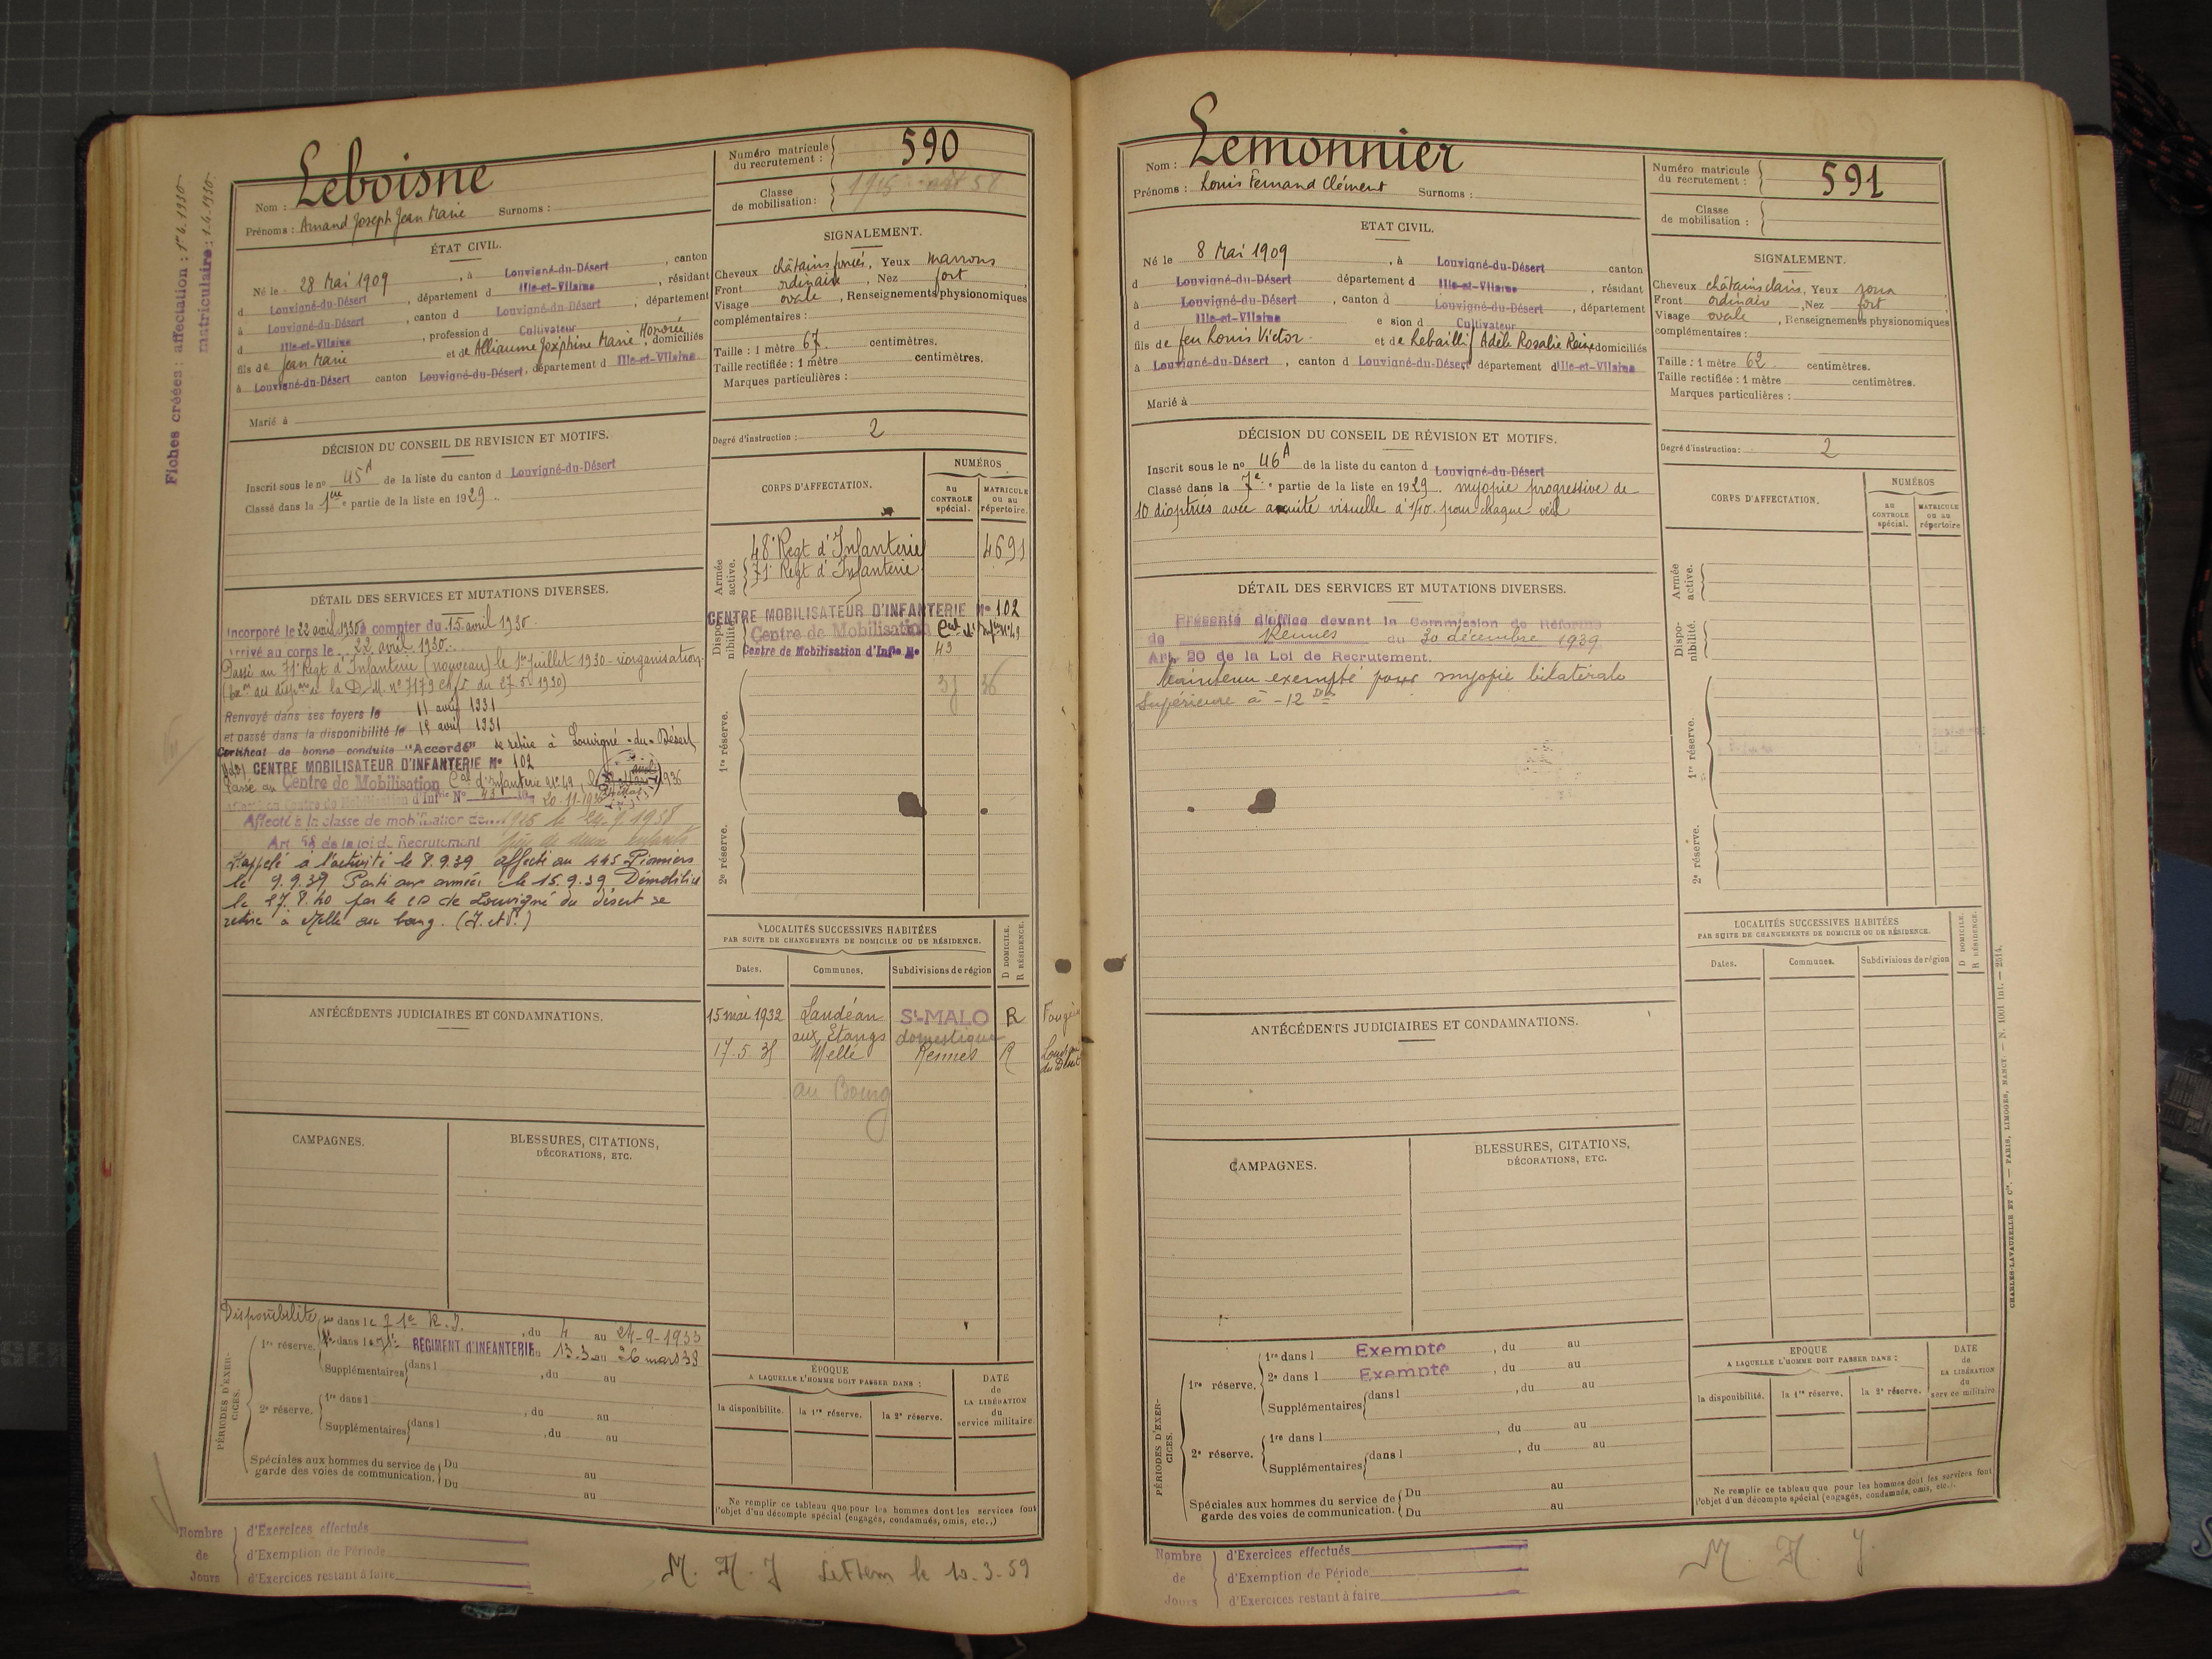 Fiches créées : affectation : 1er.4.1930
matriculaire : 1.4.1930
Nom : Leboisne
Prénoms : Amand Joseph Jean Marie Surnoms :
Numéro matricule du recrutement : 590
Classe de mobilisation :
ÉTAT CIVIL.
Né le 28 Mai 1909, à Louvigné-du-Désert, canton
d Louvigné-du-Désert, département d Ille-et-Vilaine, résidant
à Louvigné-du-Désert, canton d Louvigné-du-Désert, département
d Ille-et-Vilaine, profession d Cultivateur
fils de Jean Marie et de Alliaume Joséphine Marie Honorée, domiciliés
à Louvigné-du-Désert canton Louvigné-du-Désert, département d Ille-et-Vilaine
Marié à
SIGNALEMENT.
Cheveux châtains foncés, Yeux marrons
Front ordinaire, Nez fort
Visage ovale, Renseignements physionomiques
complémentaires :
Taille : 1 mètre 67 centimètres.
Taille rectifiée : 1 mètre centimètres.
Marques particulières :
Degré d'instruction : 2
DÉCISION DU CONSEIL DE REVISION ET MOTIFS.
Inscrit sous le no 45A de la liste du canton d Louvigné-du-Désert
Classé dans la 1ère partie de la liste en 1929.
CORPS D'AFFECTATION.
NUMÉROS
au CONTROLE spécial.
MATRICULE ou au répertoire.
Armée active.
48e Regt d'Infanterie 4691
71e Regt d'Infanterie
Disponibilité
CENTRE MOBILISATEUR D'INFANTERIE No 102
Centre de Mobilisation
Centre de Mobilisation d'Infie No 43
1re réserve.
2e réserve.
DÉTAIL DES SERVICES ET MUTATIONS DIVERSES.
Incorporé le 22 avril 1930 à compter du 15 avril 1930.
arrivé au corps le 22 avril 1930.
Passé au 71e Regt d'Infanterie (nouveau) le 1er juillet 1930 - réorganisation
Renvoyé dans ses foyers le 11 avril 1931
et passé dans la disponibilité le 15 avril 1931
Certificat de bonne conduite "Accordé" se retire à Louvigné-du-Désert
CENTRE MOBILISATEUR D'INFANTERIE No 102
Passé au Centre de Mobilisation d'Infanterie
Affecté à la classe de mobilisation de
Art. 58 de la loi de Recrutement père de deux enfants
Rappelé à l'activité le 8.9.39 affecté au 445 Pionniers
le 9.9.39 Parti aux armées le 15.9.39 Démobilisé
le 27.8.40 par le CD de Louvigné du désert se
retire à Mellé au bourg. (I. et V.)
LOCALITÉS SUCCESSIVES HABITÉES
PAR SUITE DE CHANGEMENTS DE DOMICILE OU DE RÉSIDENCE.
Dates. Communes. Subdivisions de région D DOMICILE. R RÉSIDENCE.
15 mai 1932 Landéan St-MALO R
aux Etangs domestique
17.5.35 Mellé Rennes R
au Bourg
ANTÉCÉDENTS JUDICIAIRES ET CONDAMNATIONS.
CAMPAGNES.
BLESSURES, CITATIONS, DÉCORATIONS, ETC.
PÉRIODES D'EXERCICES.
Disponibilité dans le 71e R.I., du 4 au 24-9-1933
1re réserve. 2e dans le 71e REGIMENT D'INFANTERIE du 13.3 au 26 mars 38
Supplémentaires dans l, du au
2e réserve. 1re dans l, du au
Supplémentaires dans l, du au
Spéciales aux hommes du service de garde des voies de communication. Du au
Du au
ÉPOQUE
A LAQUELLE L'HOMME DOIT PASSER DANS :
la disponibilité. la 1re réserve. la 2e réserve.
DATE de LA LIBÉRATION du service militaire.
Ne remplir ce tableau que pour les hommes dont les services font
l'objet d'un décompte spécial (engagés, condamnés, omis, etc..)
Nombre de Jours
d'Exercices effectués
d'Exemption de Période
d'Exercices restant à faire
le 10-3-59
Nom : Lemonnier
Prénoms : Louis Fernand Clément Surnoms :
Numéro matricule du recrutement : 591
Classe de mobilisation :
ETAT CIVIL.
Né le 8 Mai 1909, à Louvigné-du-Désert canton
d Louvigné-du-Désert département d Ille-et-Vilaine, résidant
à Louvigné-du-Désert, canton d Louvigné-du-Désert, département
d Ille-et-Vilaine e sion d Cultivateur
fils de feu Louis Victor et de Lebailly Adèle Rosalie Reine domiciliés
à Louvigné-du-Désert, canton d Louvigné-du-Désert département d Ille-et-Vilaine
Marié à
SIGNALEMENT.
Cheveux châtains clairs, Yeux
Front ordinaire, Nez fort
Visage ovale, Renseignements physionomiques
complémentaires :
Taille : 1 mètre 62 centimètres.
Taille rectifiée : 1 mètre centimètres.
Marques particulières :
Degré d'instruction : 2
DÉCISION DU CONSEIL DE RÉVISION ET MOTIFS.
Inscrit sous le no 46A de la liste du canton d Louvigné-du-Désert
Classé dans la 7e partie de la liste en 1929. myopie progressive de
10 dioptries avec acuité visuelle à 1/10. pour chaque œil
CORPS D'AFFECTATION.
NUMÉROS
au CONTROLE spécial.
MATRICULE ou au répertoire
Armée active.
Disponibilité.
1re réserve.
2e réserve.
DÉTAIL DES SERVICES ET MUTATIONS DIVERSES.
Présenté d'office devant la Commission de Réforme
de Rennes du 30 décembre 1939
Art. 20 de la Loi de Recrutement.
Maintenu exempté pour myopie bilatérale
Supérieure à -12 Dies
LOCALITÉS SUCCESSIVES HABITÉES
PAR SUITE DE CHANGEMENTS DE DOMICILE OU DE RÉSIDENCE.
Dates. Communes. Subdivisions de région D DOMICILE. R RÉSIDENCE.
ANTÉCÉDENTS JUDICIAIRES ET CONDAMNATIONS.
CAMPAGNES.
BLESSURES, CITATIONS, DÉCORATIONS, ETC.
PÉRIODES D'EXERCICES.
1re réserve. 1re dans l Exempté, du au
2e dans l Exempté, du au
Supplémentaires dans l, du au
2e réserve. 1re dans l, du au
Supplémentaires dans l, du au
Spéciales aux hommes du service de garde des voies de communication. Du au
Du au
EPOQUE
A LAQUELLE L'HOMME DOIT PASSER DANS :
la disponibilité. la 1re réserve. la 2e réserve.
DATE de LA LIBÉRATION du service militaire
Ne remplir ce tableau que pour les hommes dont les services font
l'objet d'un décompte spécial (engagés, condamnés, omis, etc..).
CHARLES-LAVAUZELLE ET Cie. — PARIS, LIMOGES, NANCY. — N. 1001 int. — 2514.
Nombre de Jours
d'Exercices effectués
d'Exemption de Période
d'Exercices restant à faire